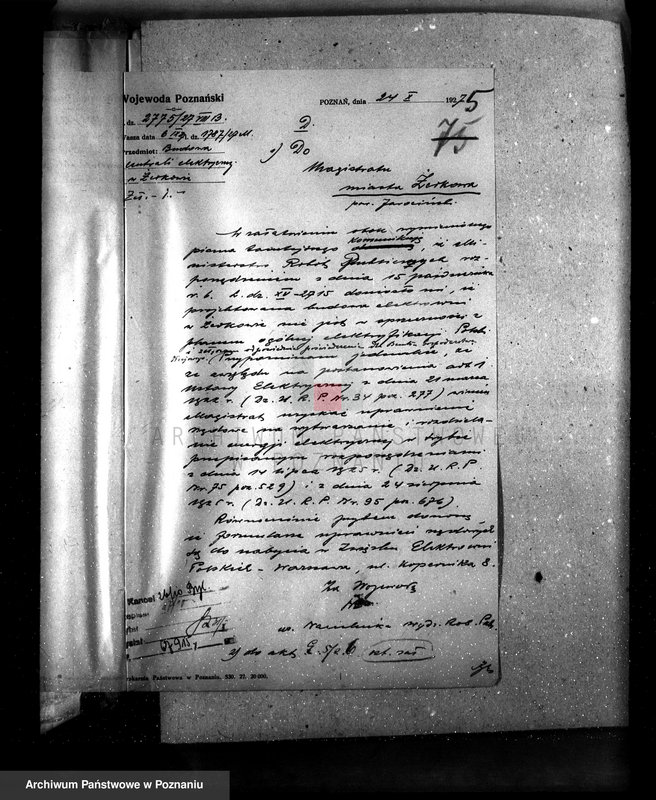 Wojewoda Poznański
POZNAŃ, dnia 24 X 1927
75
L. dz. 2775/27 VIII B.
Wasza data L. dz. 1787/27 M.
Przedmiot: Budowa
centrali elektrycznej
w Żerkowie
D.
1) Do
Magistratu
miasta Żerkowa
pow. Jarociński.
W załatwieniu obok wymienionego
pisma tamtejszego komunikuję iż Mi-
nisterstwo Robót Publicznych roz-
porządzeniem z dnia 15 października
r. b. L. dz. XV-2715 doniosło mi, iż
projektowana budowa elektrowni
w Żerkowie nie jest w sprzeczności z
planem ogólnej elektryfikacji
Przypominam jednakże, że
ze względu na postanowienia art. 1
Ustawy Elektrycznej z dnia 21 marca
1922 r. (Dz. U. R. P. Nr. 34 poz. 277) winien
Magistrat uzyskać uprawnienie
rządowe na wytwarzanie i rozdziela-
nie energji elektrycznej w trybie
przepisanym rozporządzeniami
z dnia 14 lipca 1925 r. (Dz. U. R. P.
Nr. 75 poz. 529) i z dnia 24 sierpnia
1925 r. (Dz. U. R. P. Nr. 95 poz. 676).
Równocześnie przytem donoszę,
iż formularze uprawnień rządowych
są do nabycia w Związku Elektrowni
Polskich - Warszawa, ul. Kopernika 8.
Za Wojewodę
Naczelnika Wydz. Rob. Publ.
2) do akt
Drukarnia Państwowa w Poznaniu. 530. 22. 20 000.
ARCHIWUM PAŃSTWOWE
W POZNANIU
Archiwum Państwowe w Poznaniu